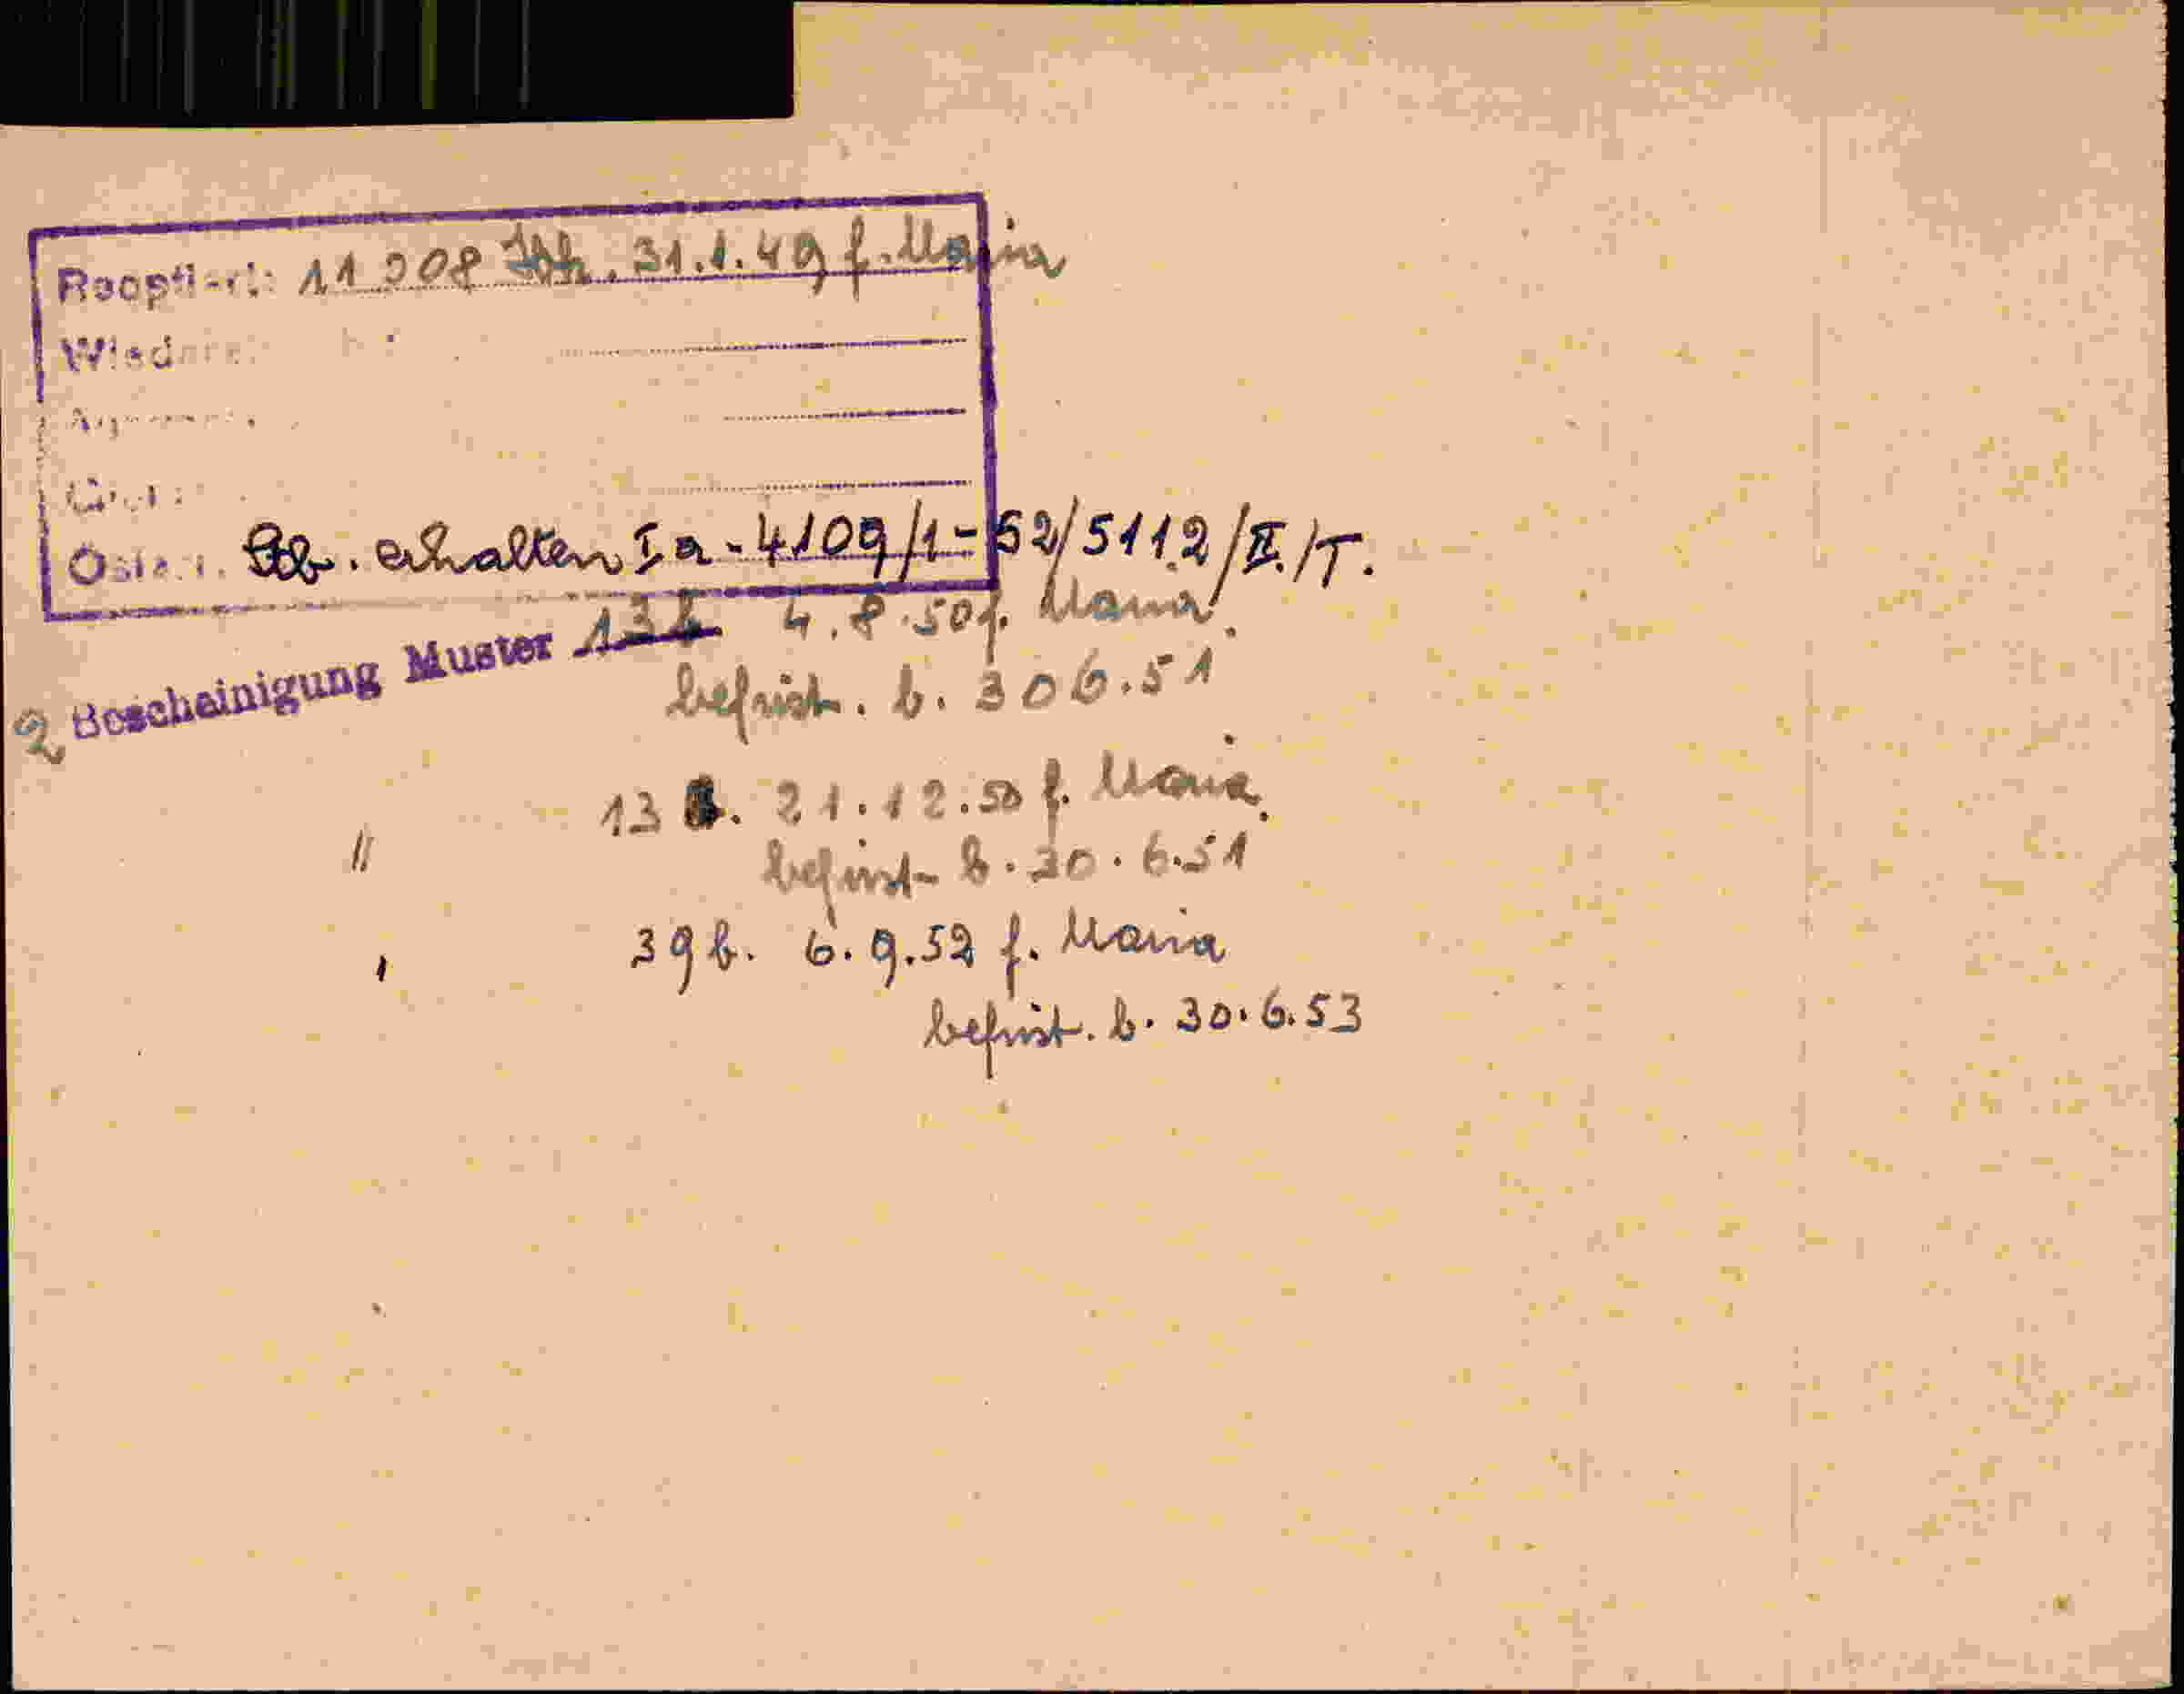 Reoptiert: 11908 Jbk. 31.1.49 f. Maria
Österr. Stb. erhalten Ia-4109/1-52/5112/II./T.
2 Bescheinigung Muster 13b 4.8.50 f. Maria
befrist. b. 30 6.51
" 13 . 21.12.50 f. Maria.
befrist b. 30.6.51
39b. 6.9.52 f. Maria
befrist. b. 30.6.53